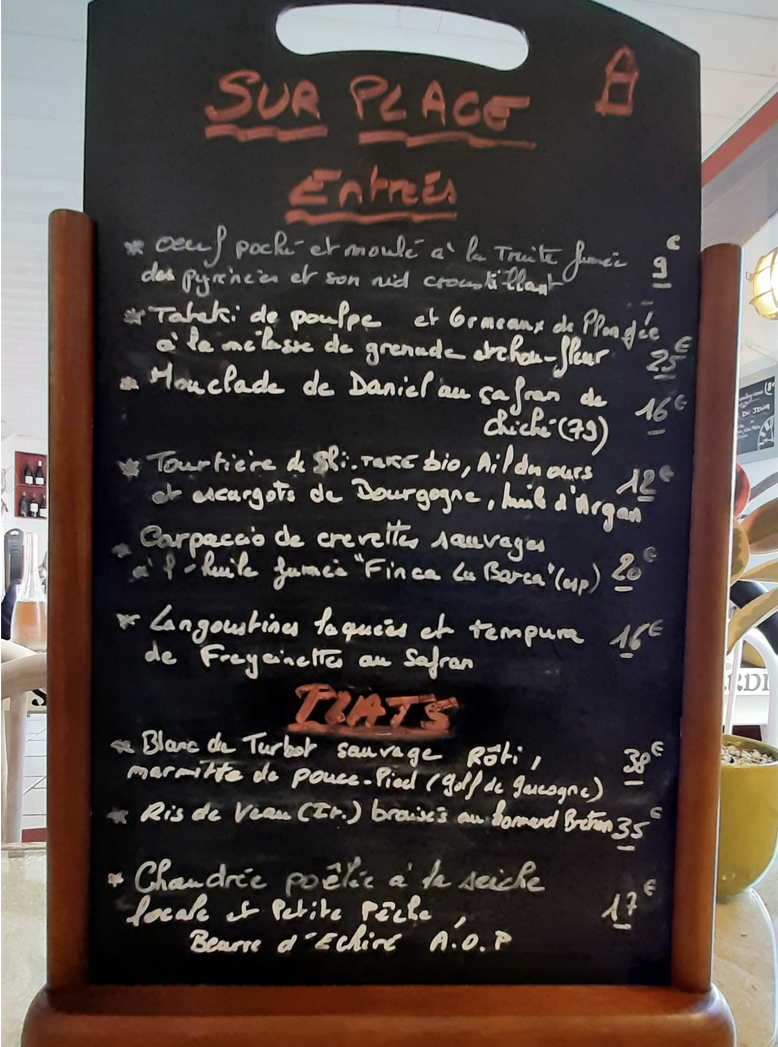 SUR PLACE
Entrées
* oeuf poché et moulé à la Truite fumée
des pyrénées et son nid croustillant 9€
* Tataki de poulpe et Ormeaux de Plongée
à la mélasse de grenade et chou-fleur 25€
* Mouclade de Daniel au safran de
chiché (79) 16€
* Tourtière de Shi.TAKE bio, Ail des ours
et escargots de Bourgogne, huile d'Argan 12€
* Carpaccio de crevettes sauvages
à l'huile fumée "Finca La Barca" (esp) 20€
* Langoustines laquées et tempura
de Freycinettes au Safran 16€
PLATS
* Blanc de Turbot sauvage Rôti,
marmitte de pouce-Pied (golf de gascogne) 38€
* Ris de Veau (Ir.) braisés au homard Breton 35€
* Chaudrée poêlée à la seiche
locale et Petite Pêche, 17€
Beurre d'Echiré A.O.P